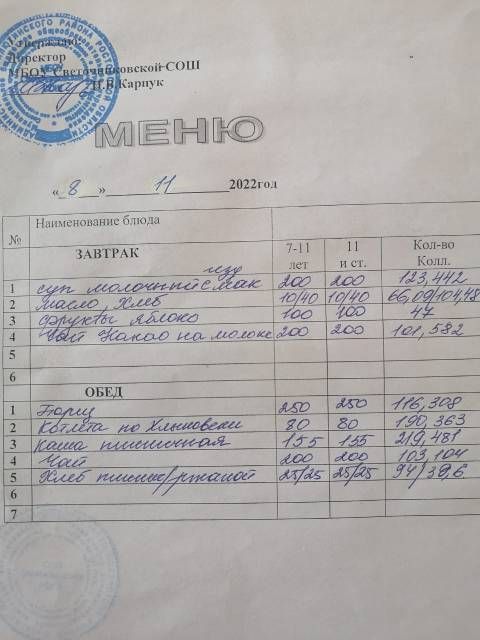 Утверждаю:
Директор
МБОУ Светочниковской СОШ
Н.В.Карпук
МЕНЮ
« 8 » 11 2022год
№ Наименование блюда
ЗАВТРАК 7-11 лет 11 и ст. Кол-во Колл.
1 суп молочный с мак изд 200 200 123,442
2 масло, хлеб 10/40 10/40 66,09/104,48
3 фрукты яблоко 100 100 47
4 Чай Какао на молоке 200 200 101,582
5
6
ОБЕД
1 Борщ 250 250 116,308
2 Котлета по 80 80 190,363
3 каша пшеничная 155 155 219,481
4 Чай 200 200 103,104
5 Хлеб пшенич/ржаной 25/25 25/25 94/39,6
6
7